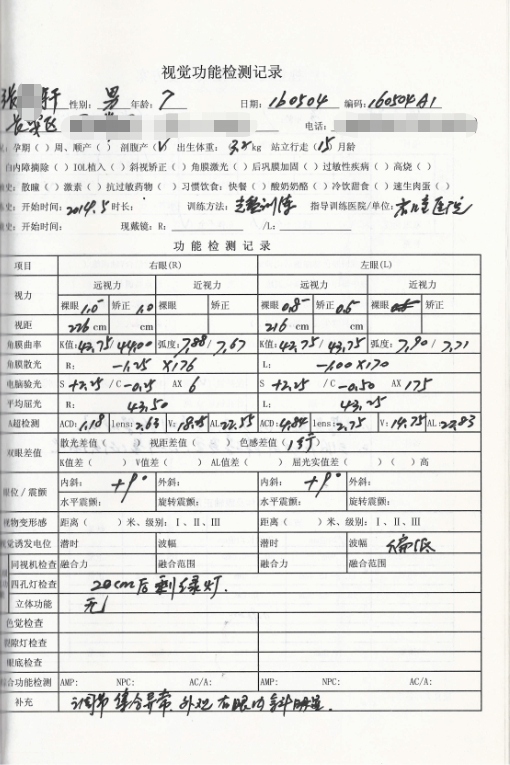 视觉功能检测记录
张 轩 性别: 男 年龄: 7 日期: 160504 编码: 160504A1
电话:
孕期( )周、顺产( )剖腹产(√ 出生体重: 3.2 kg 站立行走(15 月龄
白内障摘除( )IOL植入( )斜视矫正( )角膜激光( )后巩膜加固( )过敏性疾病( )高烧( )
史: 散瞳( )激素( )抗过敏药物( )习惯饮食: 快餐( )酸奶奶酪( )冷饮甜食( )速生肉蛋( )
史: 开始时间: 2014.5 时长: 训练方法: 训练 指导训练医院/单位: 医院
史: 开始时间: 现戴镜: R: /L:
功能检测记录
项目 右眼(R) 左眼(L)
视力 远视力 近视力 远视力 近视力
裸眼 1.0 矫正 1.0 裸眼 矫正 裸眼 0.8 矫正 0.5 裸眼 矫正
视距 226 cm cm 216 cm cm
角膜曲率 K值: 42.75/44.00 弧度: 7.88/7.67 K值: 42.75/43.75 弧度: 7.90/7.71
角膜散光 R: -1.25 X176 L: -1.00X170
电脑验光 S +2.25 /C -0.25 AX 6 S +2.25 /C -0.50 AX 175
平均屈光 R: 43.50 L: 43.25
A超检测 ACD: lens: 2.63 V: AL: 22.55 ACD: 4.84 lens: 2.75 V: 14.75 AL: 22.83
双眼差值 散光差值( ) 视距差值( ) 色感差值(1行)
K值差( ) V值差( ) AL值差( ) 屈光实值差( )( )高
眼位/震颤 内斜: +9° 外斜: 内斜: +9° 外斜:
水平震颤: 旋转震颤: 水平震颤: 旋转震颤:
视物变形感 距离( )米、级别: Ⅰ、Ⅱ、Ⅲ 距离( )米、级别: Ⅰ、Ⅱ、Ⅲ
视觉诱发电位 潜时 波幅 潜时 波幅 偏低
同视机检查 融合力 融合范围 融合力 融合范围
四孔灯检查 20cm后剩绿灯.
立体功能 无
色觉检查
裂隙灯检查
眼底检查
综合功能检测 AMP: NPC: AC/A: AMP: NPC: AC/A:
补充 调节集合异常, 外观右眼内斜明显.